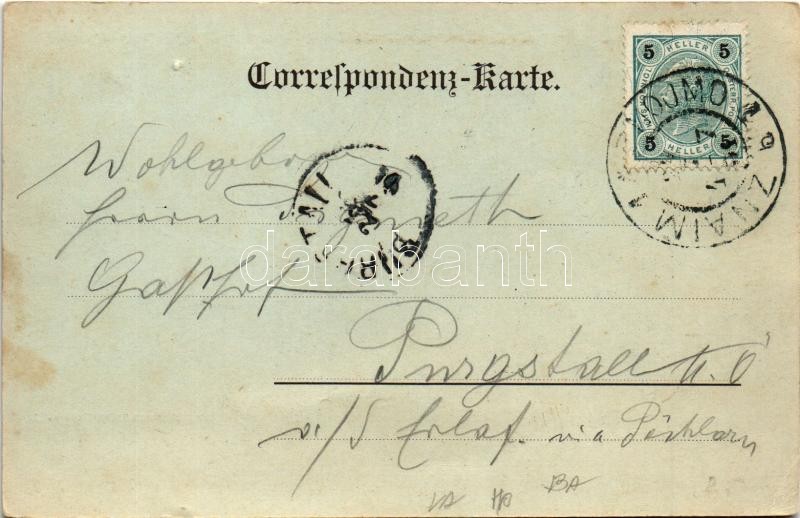 Correspondenz-Karte.
5 HELLER 5
5 HELLER 5
ZNOJMO
ZNAIM
Wohlgeboren
Herrn
Gasthof
Purgstall N.Ö
a/d Erlaf. via Pöchlarn
darabanth
BA